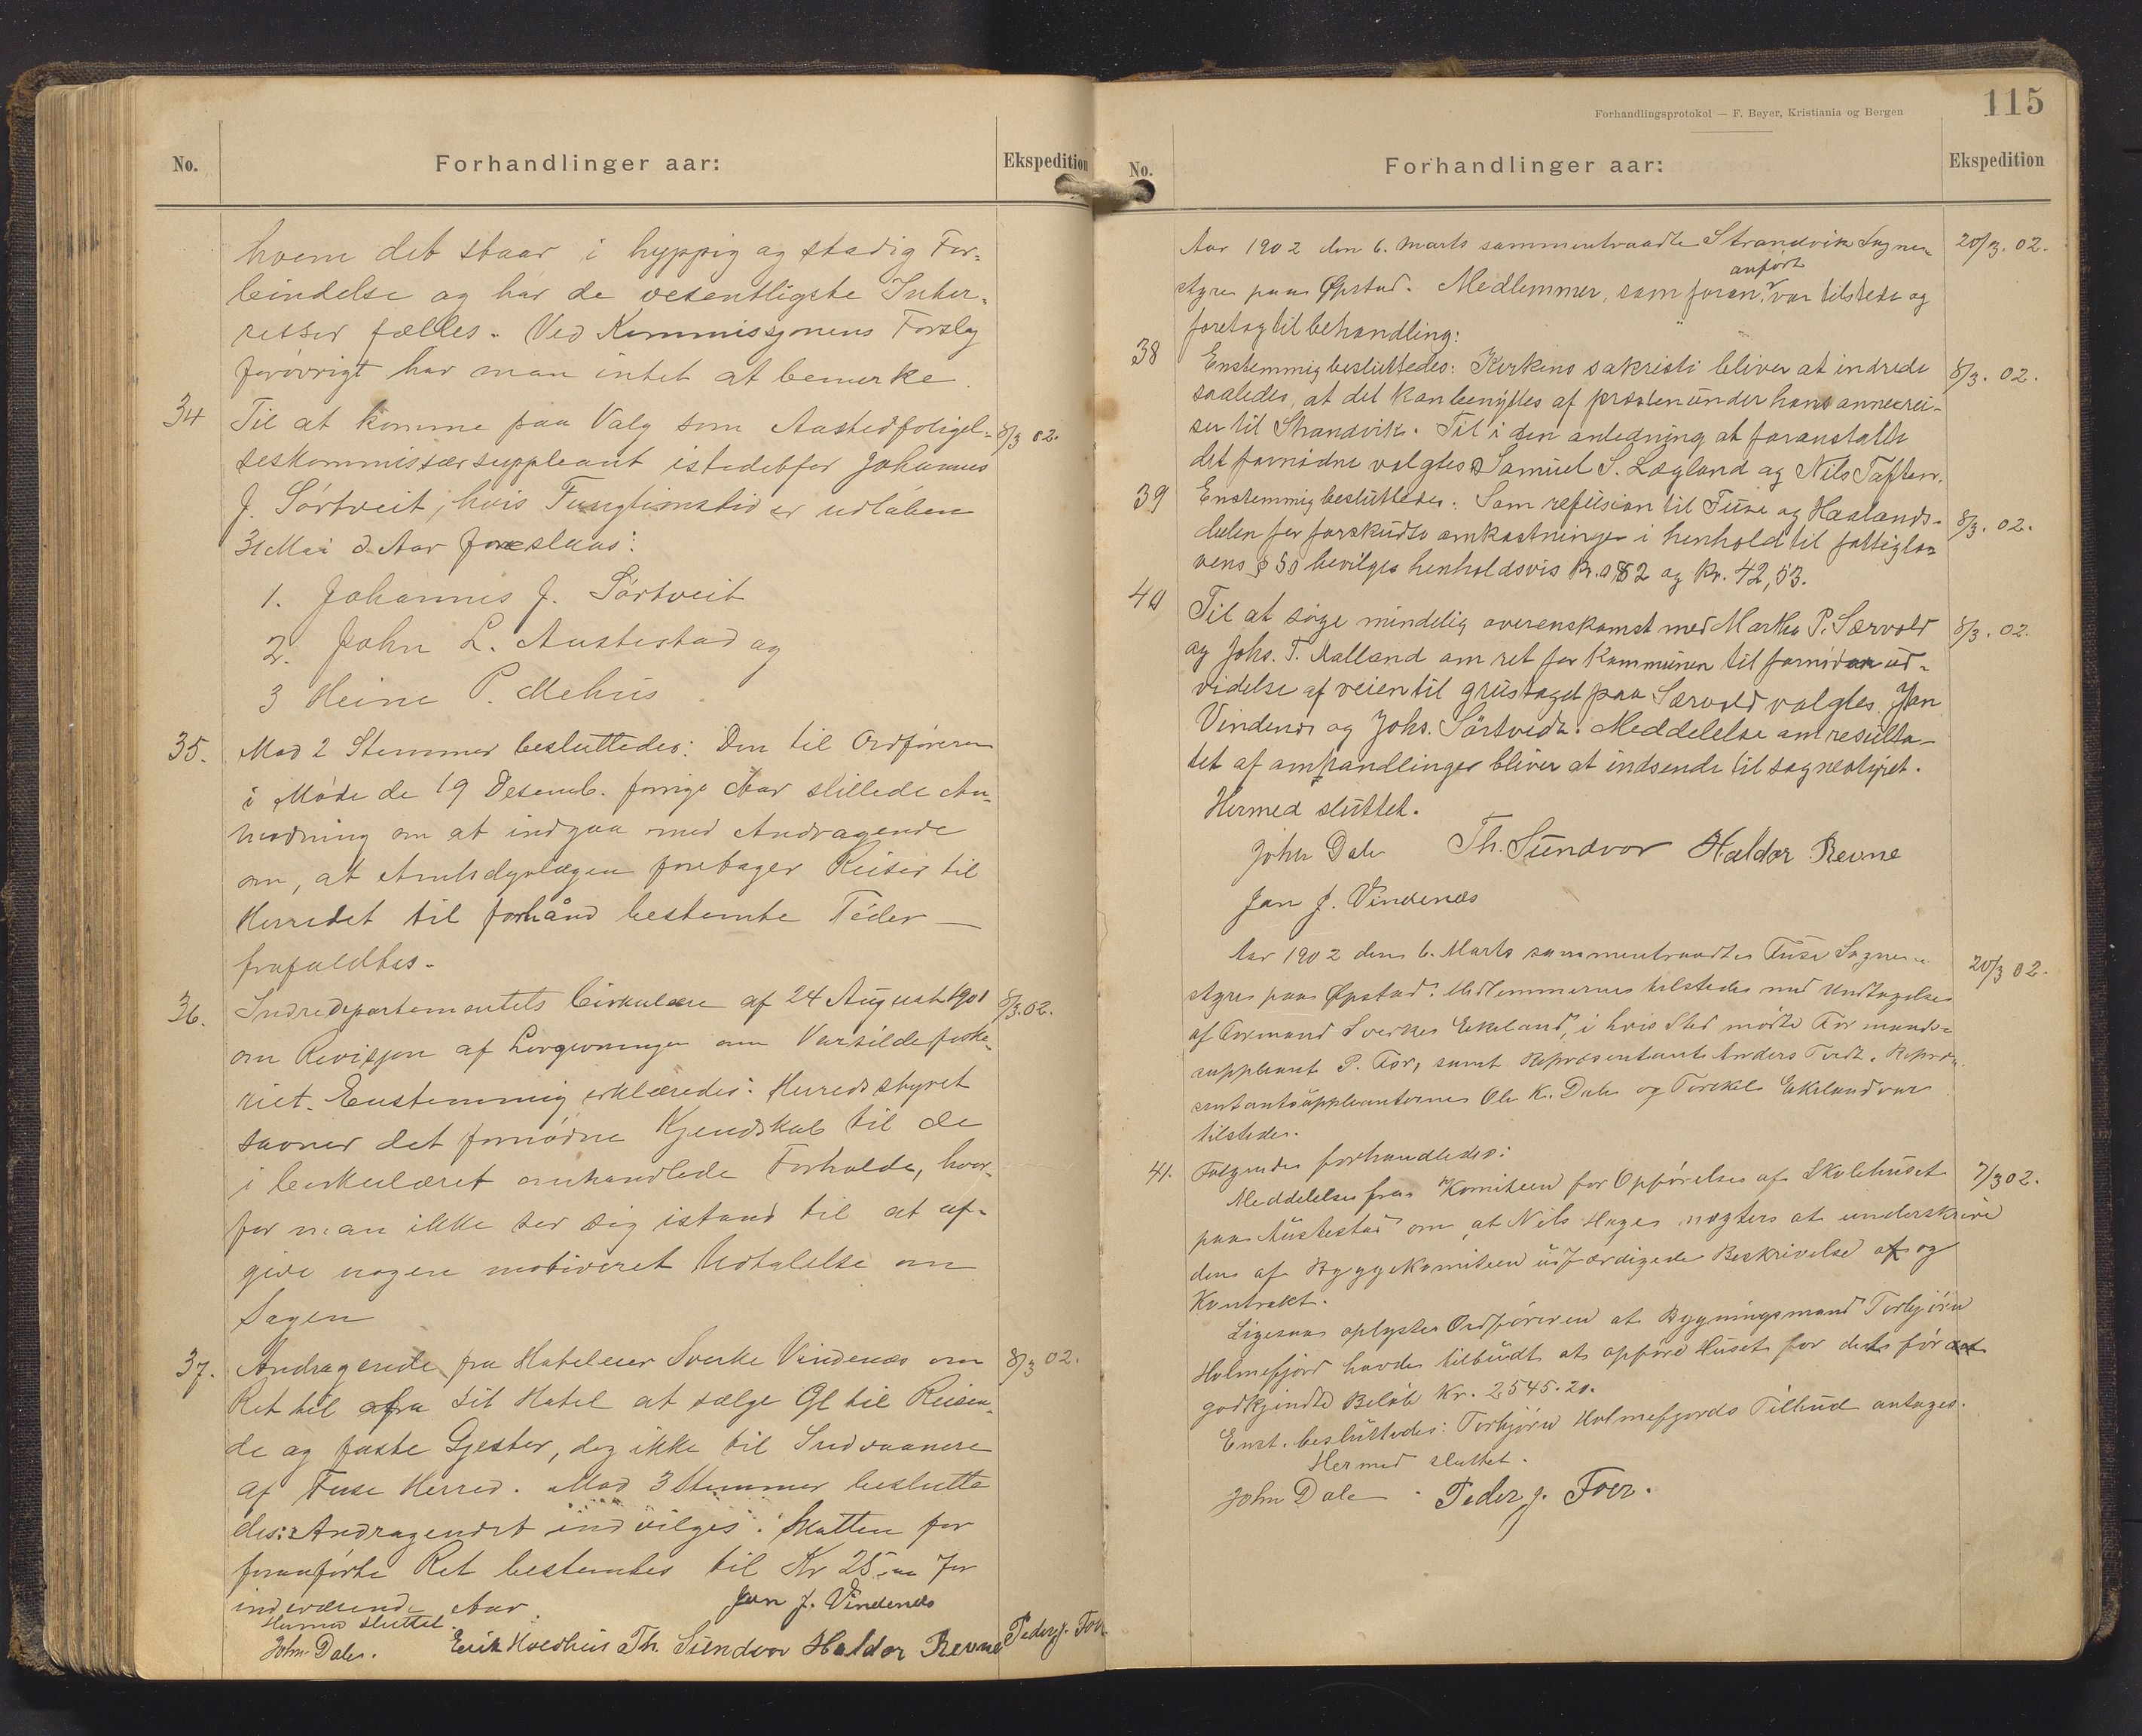 No.
Forhandlinger aar:
Ekspedition
hvem det staar i hyppig og stadig For-
bindelse og har de vesentligste Inter-
resser fælles. Ved Kommissjonens Forslag
forøvrigt har man intet at bemerke.
34 Til at komme paa Valg som
8/3 02.
seskommissærsuppleant istedetfor Johannes
J. Sørtveit, hvis Fungtionstid er udløben
31 Mai d. Aar foreslaas:
1. Johannes J. Sørtveit
2. John L. Austestad og
3 Heine P. Mehus
35. Mod 2 Stemmer besluttedes: Den til Ordføreren
i Møde de 19 Desemb. forrige Aar stillede An-
modning om at indgaa med Andragende
om, at Amtsdyrlægen foretager Reiser til
Herredet til forhånd bestemte Tider
frafaldtes.
36. Indredepartementets Cirkulære af 24 August 1901
8/3.02.
om Revisjon af Lovgivningen om Vårsildefiske-
riet. Enstemmig erklæredes: Herredsstyret
savner det fornødne Kjendskab til de
i Cirkulæret omhandlede Forholde, hvor-
for man ikke ser sig istand til at af-
give nogen motiveret Udtalelse om
Sagen
37. Andragende fra Hoteleier Sverke Vindenæs om
8/3 02.
Ret til fra sit Hotel at sælge Øl til Reisen-
de og faste Gjester, dog ikke til Indvaanere
af Fuse Herred. Mod 3 Stemmer beslutte
des: Andragendet indvilges. Skatten for
foranførte Ret bestemtes til Kr 25 for
indeværende Aar.
Jan J. Vindenes
Hermed sluttet.
John Dale. Erik Hoedhus Th. Sundvor Haldor Revne Peder J. Foer

115
Forhandlingsprotokol — F. Beyer, Kristiania og Bergen
No.
Forhandlinger aar:
Ekspedition
Aar 1902 den 6. marts sammentraadte Strandvik Sogne-
20/3. 02.
anført
styre paa Øpstad. Medlemmer, som foran var tilstede og
foretog til behandling:
38 Enstemmig besluttedes: Kirkens sakristi bliver at indrede
8/3. 02.
saaledes, at det kan benyttes af presten under hans annexrei-
ser til Strandvik. Til i den anledning at foranstalte
det fornødne valgtes Samuel S. Lægland og Nils Taften.
39 Enstemmig besluttedes: Som refusion til Fuse og Haalands-
8/3. 02.
dalen for forskudte omkostninger i henhold til fattiglo-
vens § 50 bevilges henholdsvis og Kr. 42,53.
40 Til at søge mindelig overenskomst med Martha P. Særvold
8/3. 02.
og Johs. T. Aalland om ret for Kommunen til fornøden ud-
videlse af veien til grustaget paa Særvold valgtes Jan
Vindenes og Johs. Sørtvedt. Meddelelse om resulta-
tet af omhandlingen bliver at indsende til sognestyret.
Hermed sluttet.
John Dale Th. Sundvor Haldor Revne
Jan J. Vindenæs
Aar 1902 den 6. Marts sammentraadte Fuse Sogne-
20/3 02.
styre paa Øpstad. Medlemmerne tilstede med Undtagelse
af Formand Sverkes Eikeland, i hvis Sted mødte Formands-
suppleant P. Foer, samt Repræsentant Anders Tvedt. Repræ-
sentantsuppleanterne Ole K. Dale og Torckel Eikeland var
tilstede.
Følgende forhandledes:
41. Meddelelse fra Komiteen for Opførelse af Skolehuset
7/3 02.
paa Austestad om, at Nils Hages nægter at underskrive
den af Byggekomiteen udfærdigede Beskrivelse og
Kontrakt.
Ligesaa oplyste Ordføreren at Bygningsmand Torbjørn
Holmefjord havde tilbudt at opføre Huset for det før
godkjendte Beløb Kr. 2545.20.
Enst. besluttedes: Torbjørn Holmefjords Tilbud antages.
Hermed sluttet.
John Dale. Peder J. Foer.